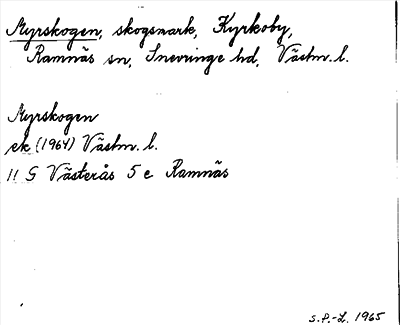 Myrskogen, skogsmark, Kyrkoby,
Ramnäs sn, Snevringe hd, Västm. l.
Myrskogen
ek (1964) Västm. l.
11 G Västerås 5 e Ramnäs
S.P.-L. 1965